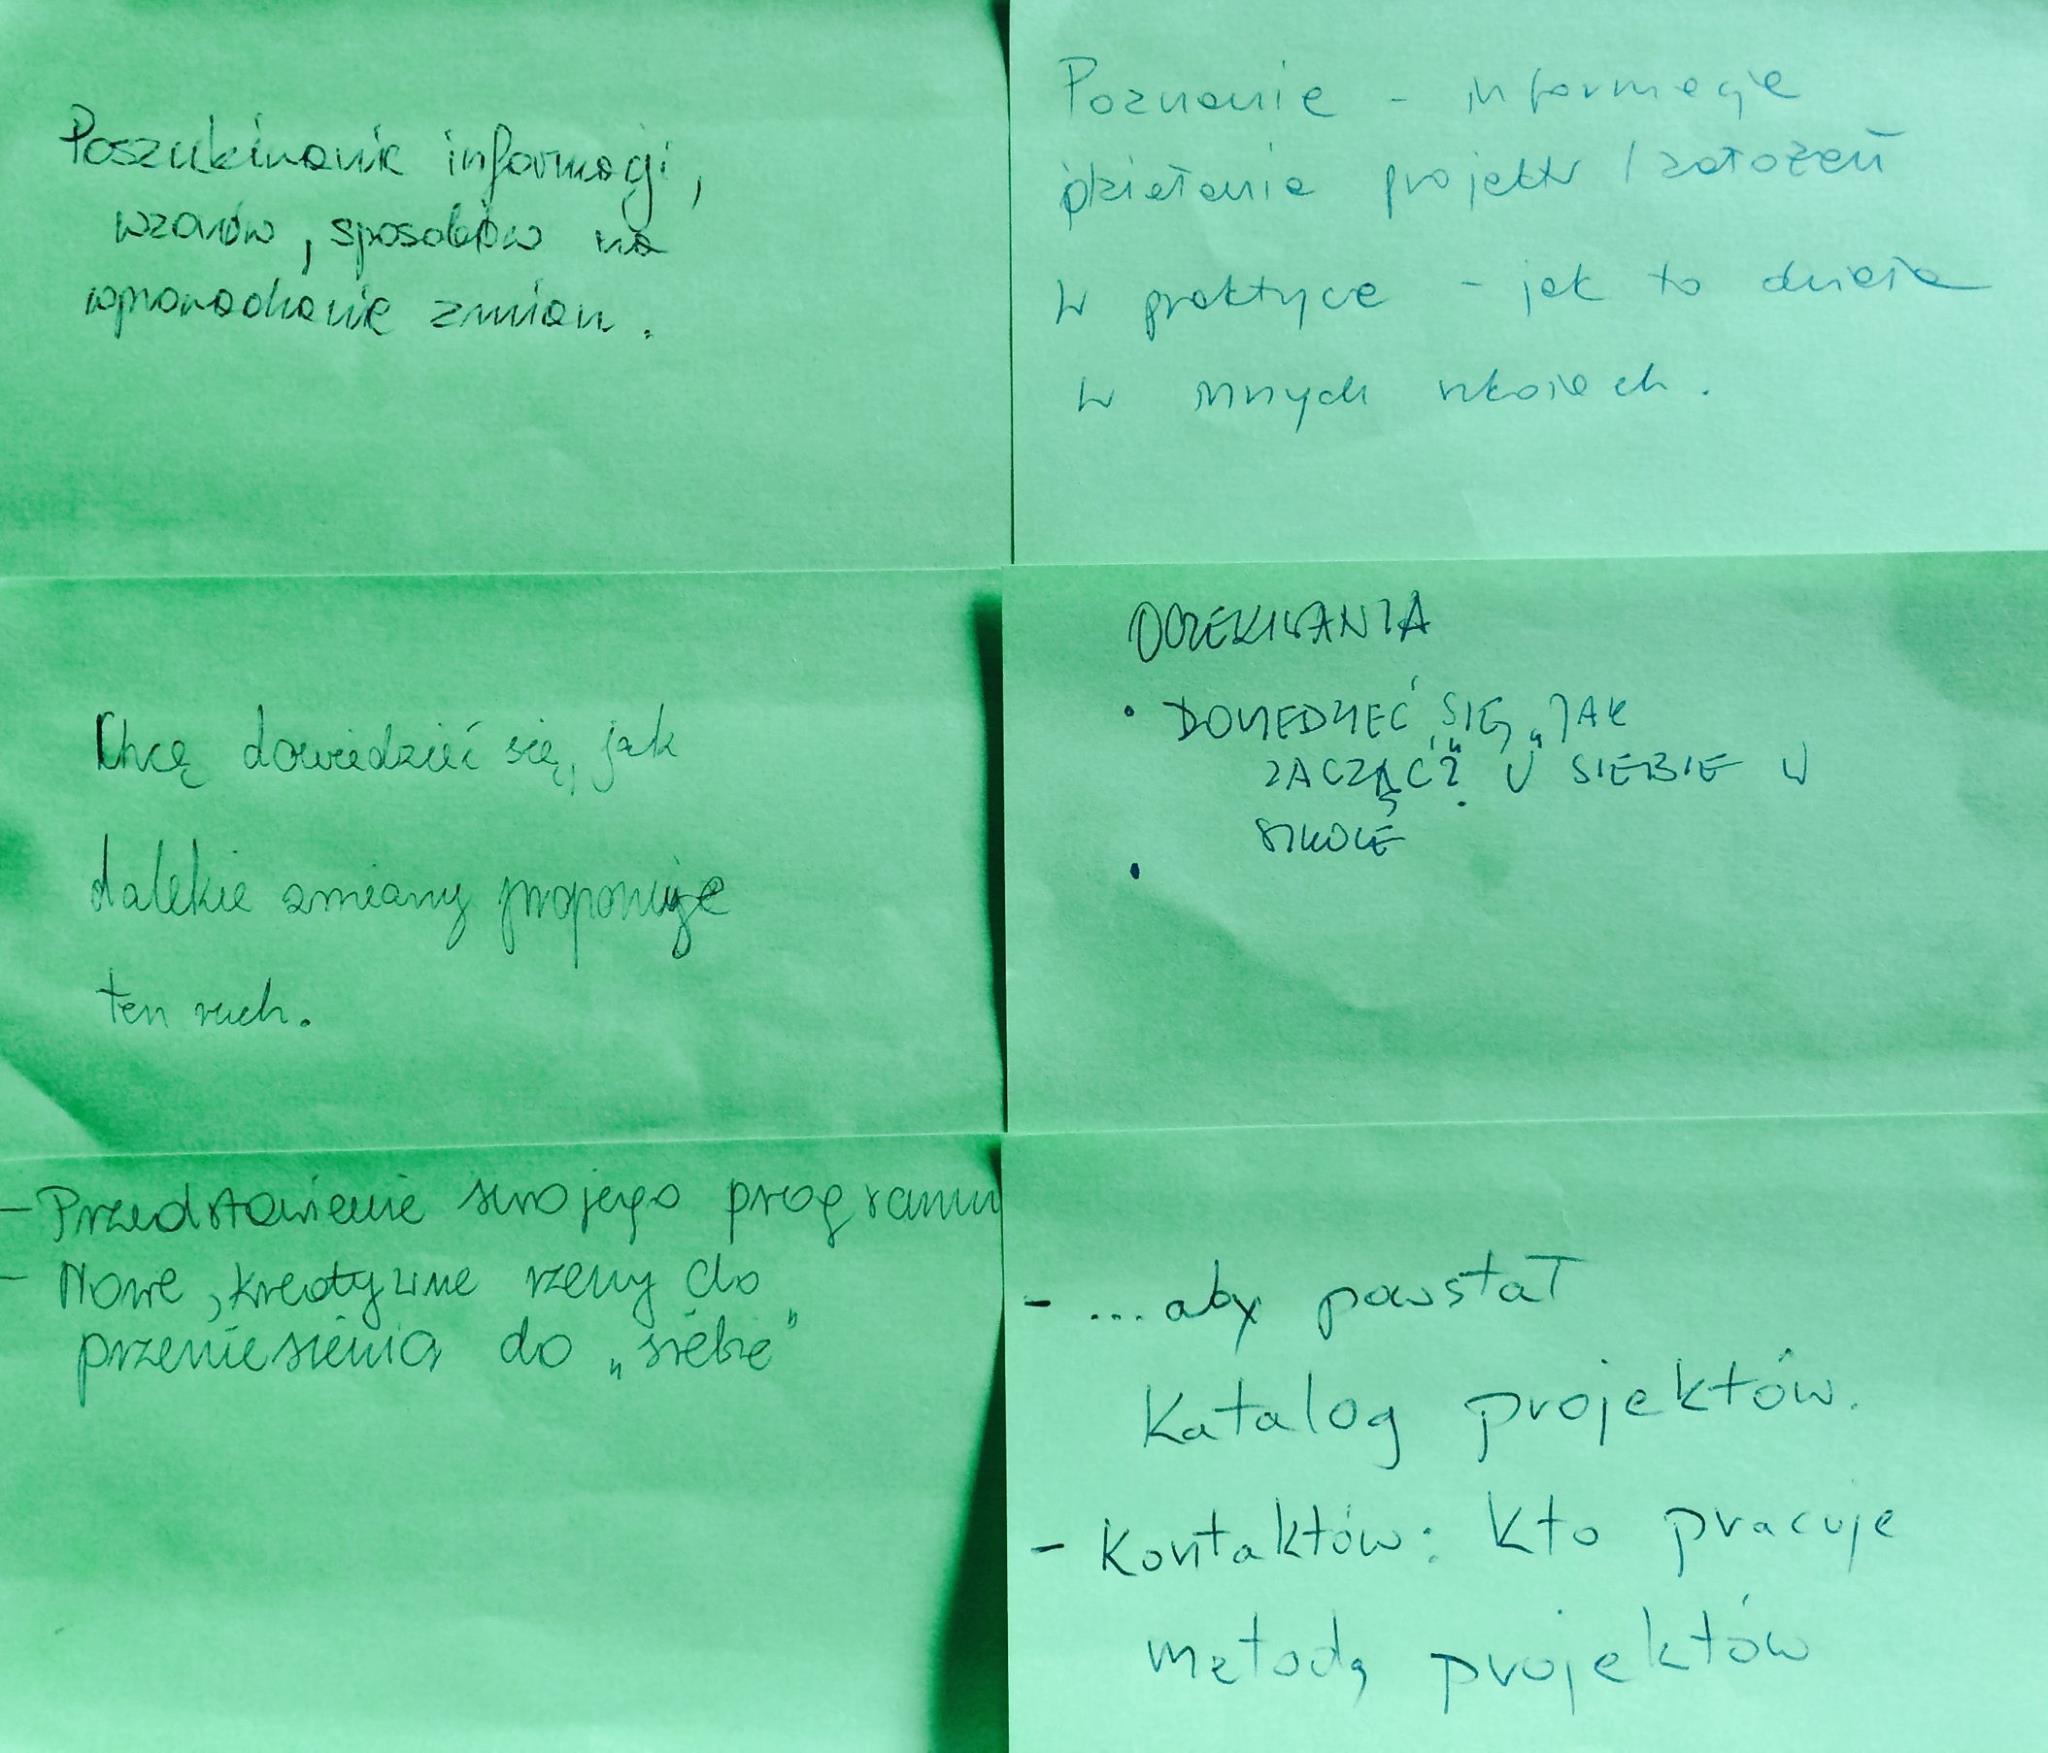 Poszukiwanie informacji,
wzorów, sposobów na
wprowadzanie zmian.
Poznanie - informacje
działanie projektu / założeń
w praktyce - jak to działa
w innych szkołach.
Chcę dowiedzieć się, jak
dalekie zmiany proponuje
ten ruch.
OCZEKIWANIA
• DOWIEDZIEĆ SIĘ, JAK
„ZACZĄĆ?" U SIEBIE W
SZKOLE
•
- Przedstawienie swojego programu
- Nowe, kreatywne rzeczy do
przeniesienia do „siebie"
- ...aby powstał
Katalog projektów.
- Kontaktów: kto pracuje
metodą projektów